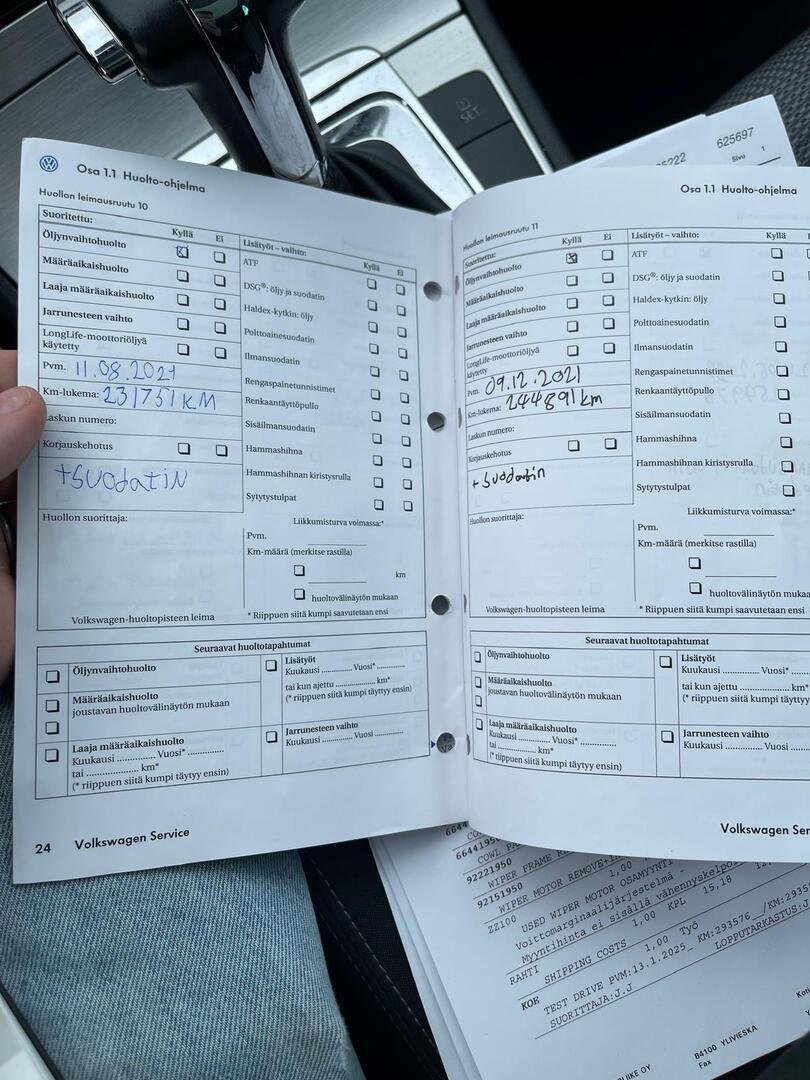 SET
625697
Sivu 1
Osa 1.1 Huolto-ohjelma
Huollon leimausruutu 10
Suoritettu:
Kyllä Ei
Öljynvaihtohuolto
Määräaikaishuolto
Laaja määräaikaishuolto
Jarrunesteen vaihto
LongLife-moottoriöljyä
käytetty
Pvm. 11.08.2021
Km-lukema: 231751 KM
Laskun numero:
Korjauskehotus
+SUODATIN
Huollon suorittaja:
Volkswagen-huoltopisteen leima
Lisätyöt – vaihto:
Kyllä Ei
ATF
DSG®: öljy ja suodatin
Haldex-kytkin: öljy
Polttoainesuodatin
Ilmansuodatin
Rengaspainetunnistimet
Renkaantäyttöpullo
Sisäilmansuodatin
Hammashihna
Hammashihnan kiristysrulla
Sytytystulpat
Liikkumisturva voimassa:*
Pvm.
Km-määrä (merkitse rastilla)
km
huoltovälinäytön mukaan
* Riippuen siitä kumpi saavutetaan ensi
Seuraavat huoltotapahtumat
Öljynvaihtohuolto
Määräaikaishuolto
joustavan huoltovälinäytön mukaan
Laaja määräaikaishuolto
Kuukausi ............. Vuosi* .............
tai .................... km*
(* riippuen siitä kumpi täytyy ensin)
Lisätyöt
Kuukausi ........... Vuosi* ..........
tai kun ajettu .................... km*
(* riippuen siitä kumpi täytyy ensin)
Jarrunesteen vaihto
Kuukausi ........... Vuosi ..........
24 Volkswagen Service
Osa 1.1 Huolto-ohjelma
Huollon leimausruutu 11
Suoritettu:
Kyllä Ei
Öljynvaihtohuolto
Määräaikaishuolto
Laaja määräaikaishuolto
Jarrunesteen vaihto
LongLife-moottoriöljyä
käytetty
Pvm. 09.12.2021
Km-lukema: 244891 km
Laskun numero:
Korjauskehotus
+ Suodatin
Huollon suorittaja:
Volkswagen-huoltopisteen leima
Lisätyöt – vaihto:
Kyllä
ATF
DSG®: öljy ja suodatin
Haldex-kytkin: öljy
Polttoainesuodatin
Ilmansuodatin
Rengaspainetunnistimet
Renkaantäyttöpullo
Sisäilmansuodatin
Hammashihna
Hammashihnan kiristysrulla
Sytytystulpat
Liikkumisturva voimassa:*
Pvm.
Km-määrä (merkitse rastilla)
huoltovälinäytön mukaan
* Riippuen siitä kumpi saavutetaan ensi
Seuraavat huoltotapahtumat
Öljynvaihtohuolto
Määräaikaishuolto
joustavan huoltovälinäytön mukaan
Laaja määräaikaishuolto
Kuukausi ............. Vuosi* .............
tai .................... km*
(* riippuen siitä kumpi täytyy ensin)
Lisätyöt
Kuukausi ........... Vuosi*
tai kun ajettu .................... km*
(* riippuen siitä kumpi täytyy
Jarrunesteen vaihto
Kuukausi ........... Vuosi
Volkswagen Ser
66441950
COWL
92221950
WIPER FRAME
92151950 1,00
WIPER MOTOR REMOVE+
ZZ100
USED WIPER MOTOR OSAMYYNTI
Voittomarginaalijärjestelmä -
Myyntihinta ei sisällä vähennyskelpo
RAHTI 1,00 KPL 15,18
SHIPPING COSTS
KOE 1,00 Työ
TEST DRIVE PVM:13.1.2025_ KM:293576 /KM:2935
SUORITTAJA:J.J LOPPUTARKASTUS:J.
84100 YLIVIESKA
Fax